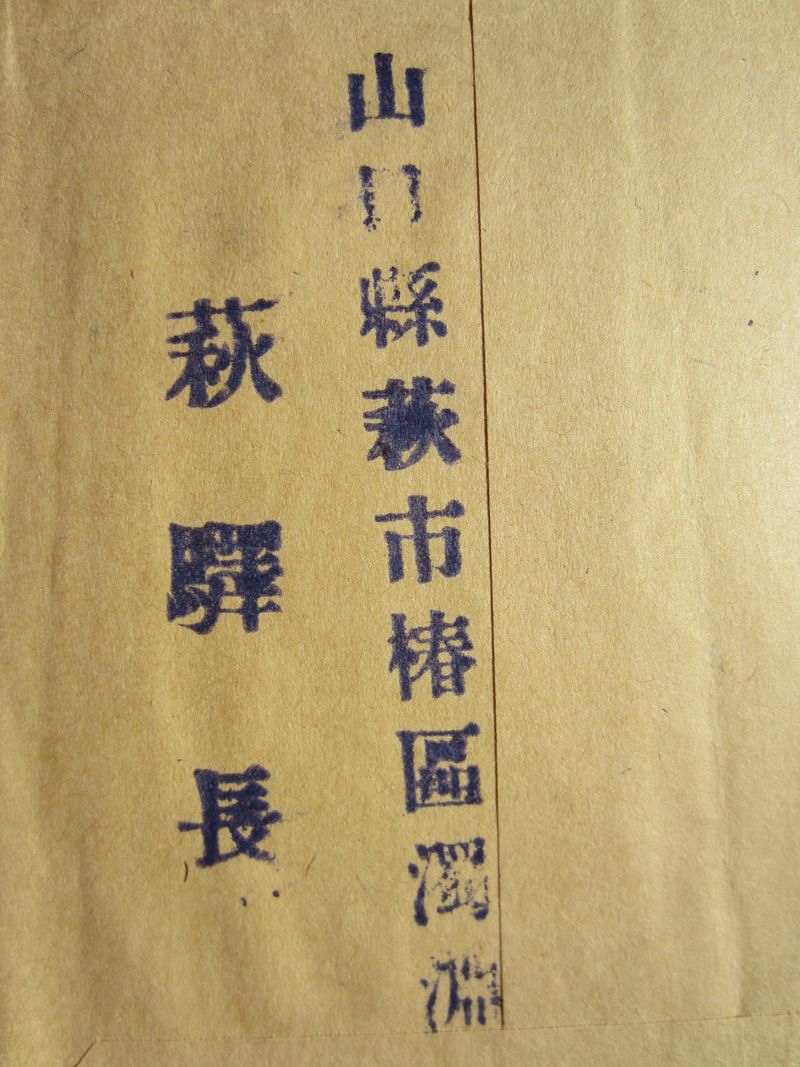 山口縣萩市椿區濁淵
萩驛長